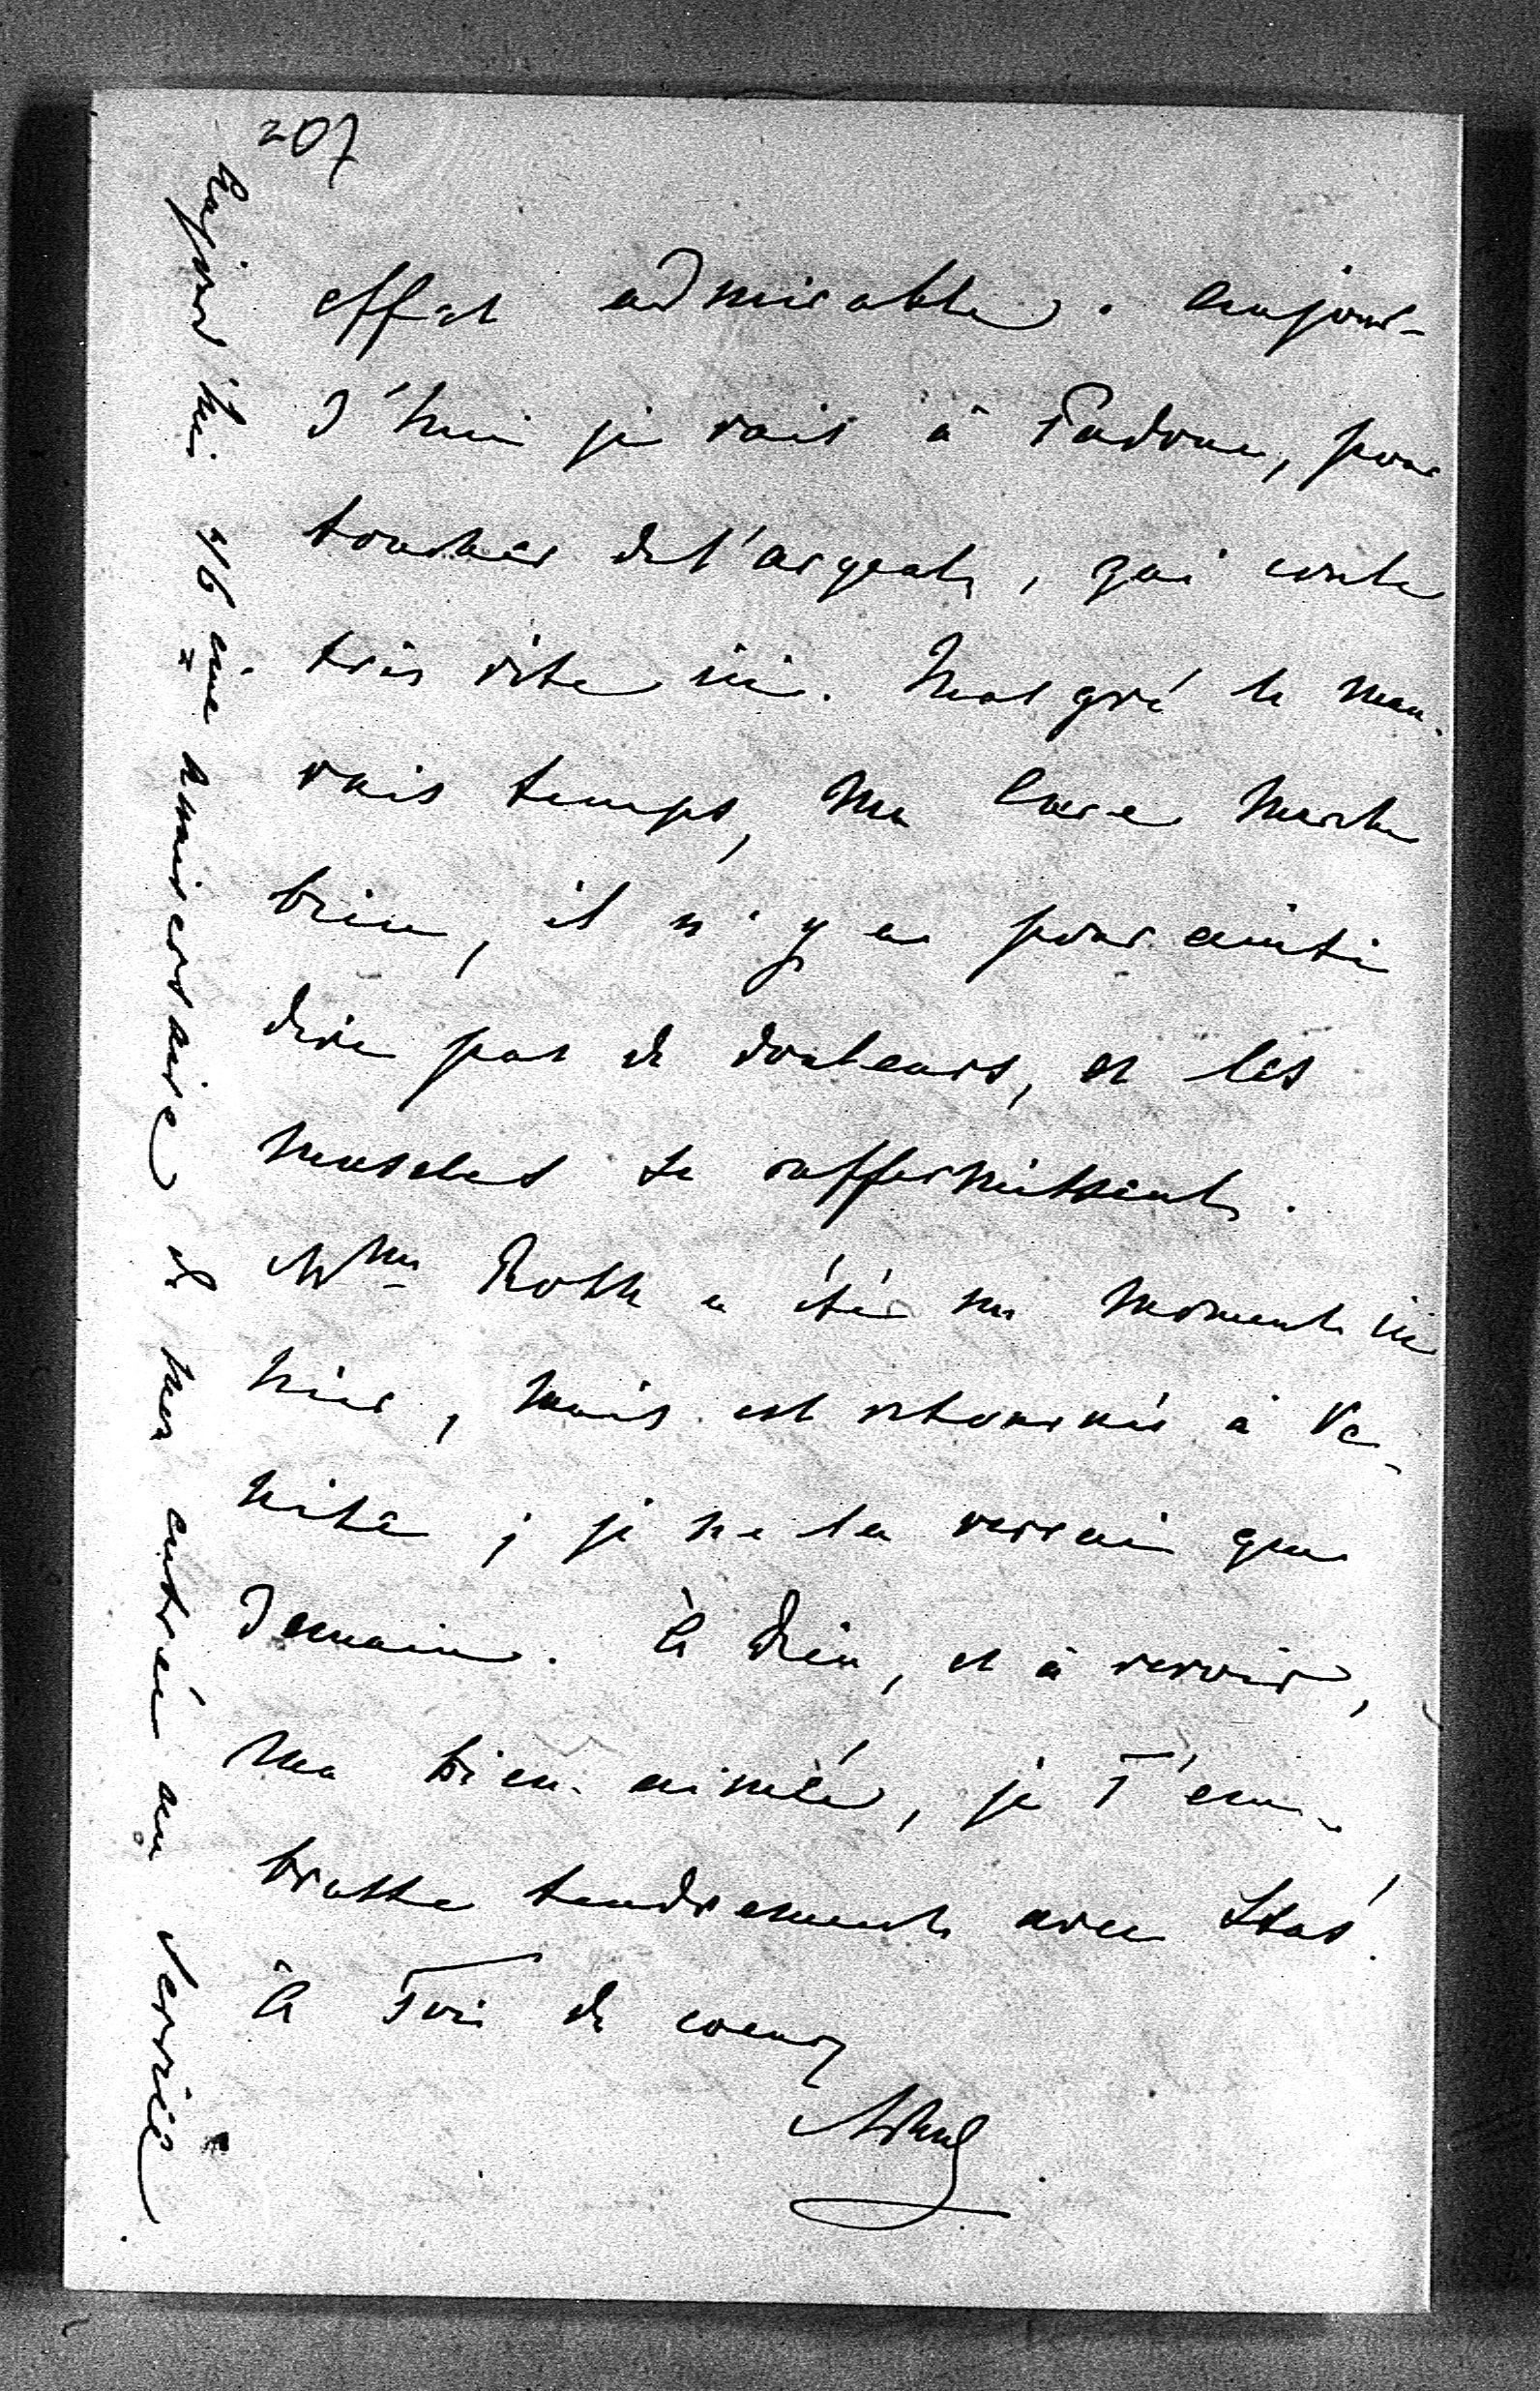 207
effet admirable. Aujour-
d'hui je vais à Padoue, pour
toucher de l'argent, qui coule
très vite ici. Malgré le mau-
vais temps, ma cure marche
bien, il n'y a pour ainsi
dire pas de douleurs, et les
muscles se raffermissent.
Mme Roth a été un moment ici
hier, mais est retournée à Ve-
nise ; je ne la verrai que
demain. à Dieu, et à revoir,
ma bien-aimée, je T'em-
brasse tendrement avec Stas'.
à Toi de coeur
Aujourd'hui 46ème anniversaire de mon entrée au service.